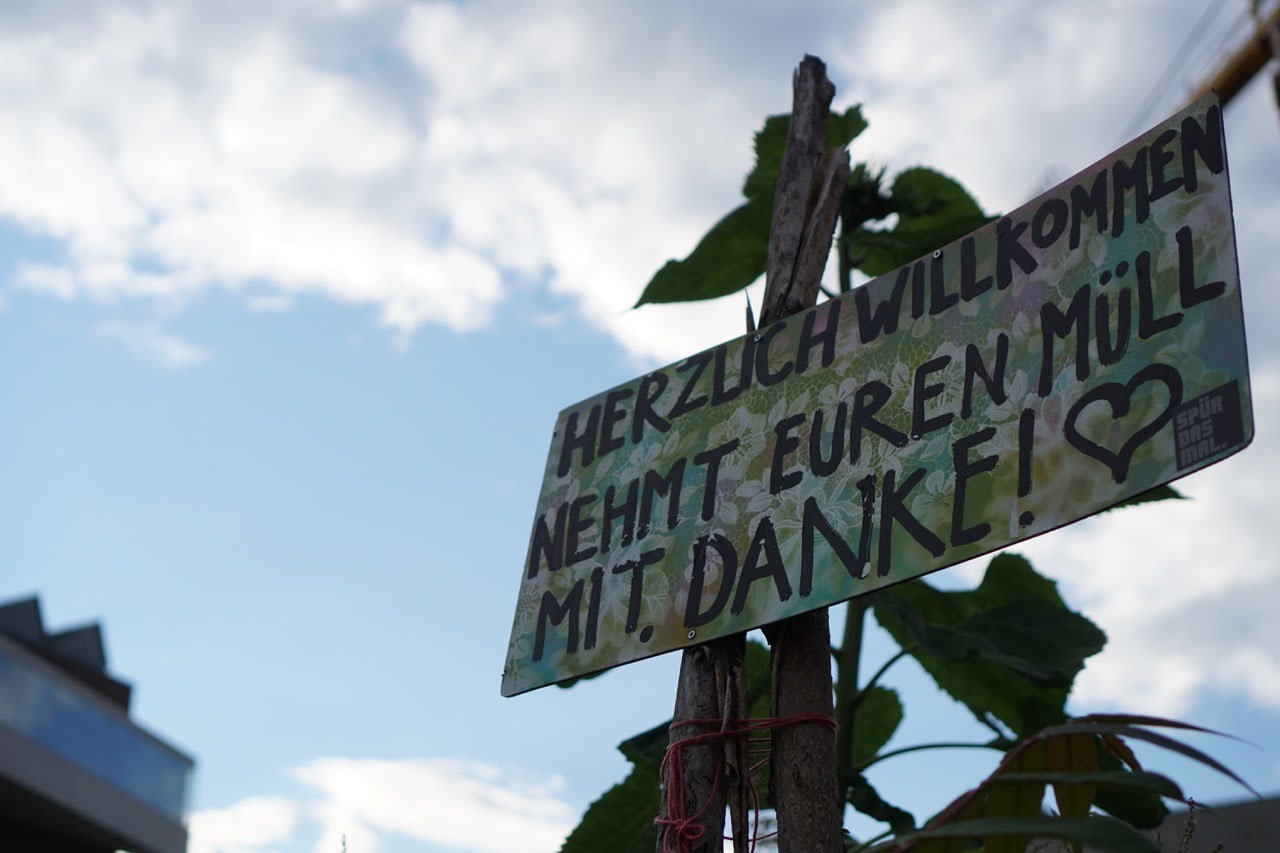 HERZLICH WILLKOMMEN
NEHMT EUREN MÜLL
MIT. DANKE!
SPÜR
DAS
MAL.